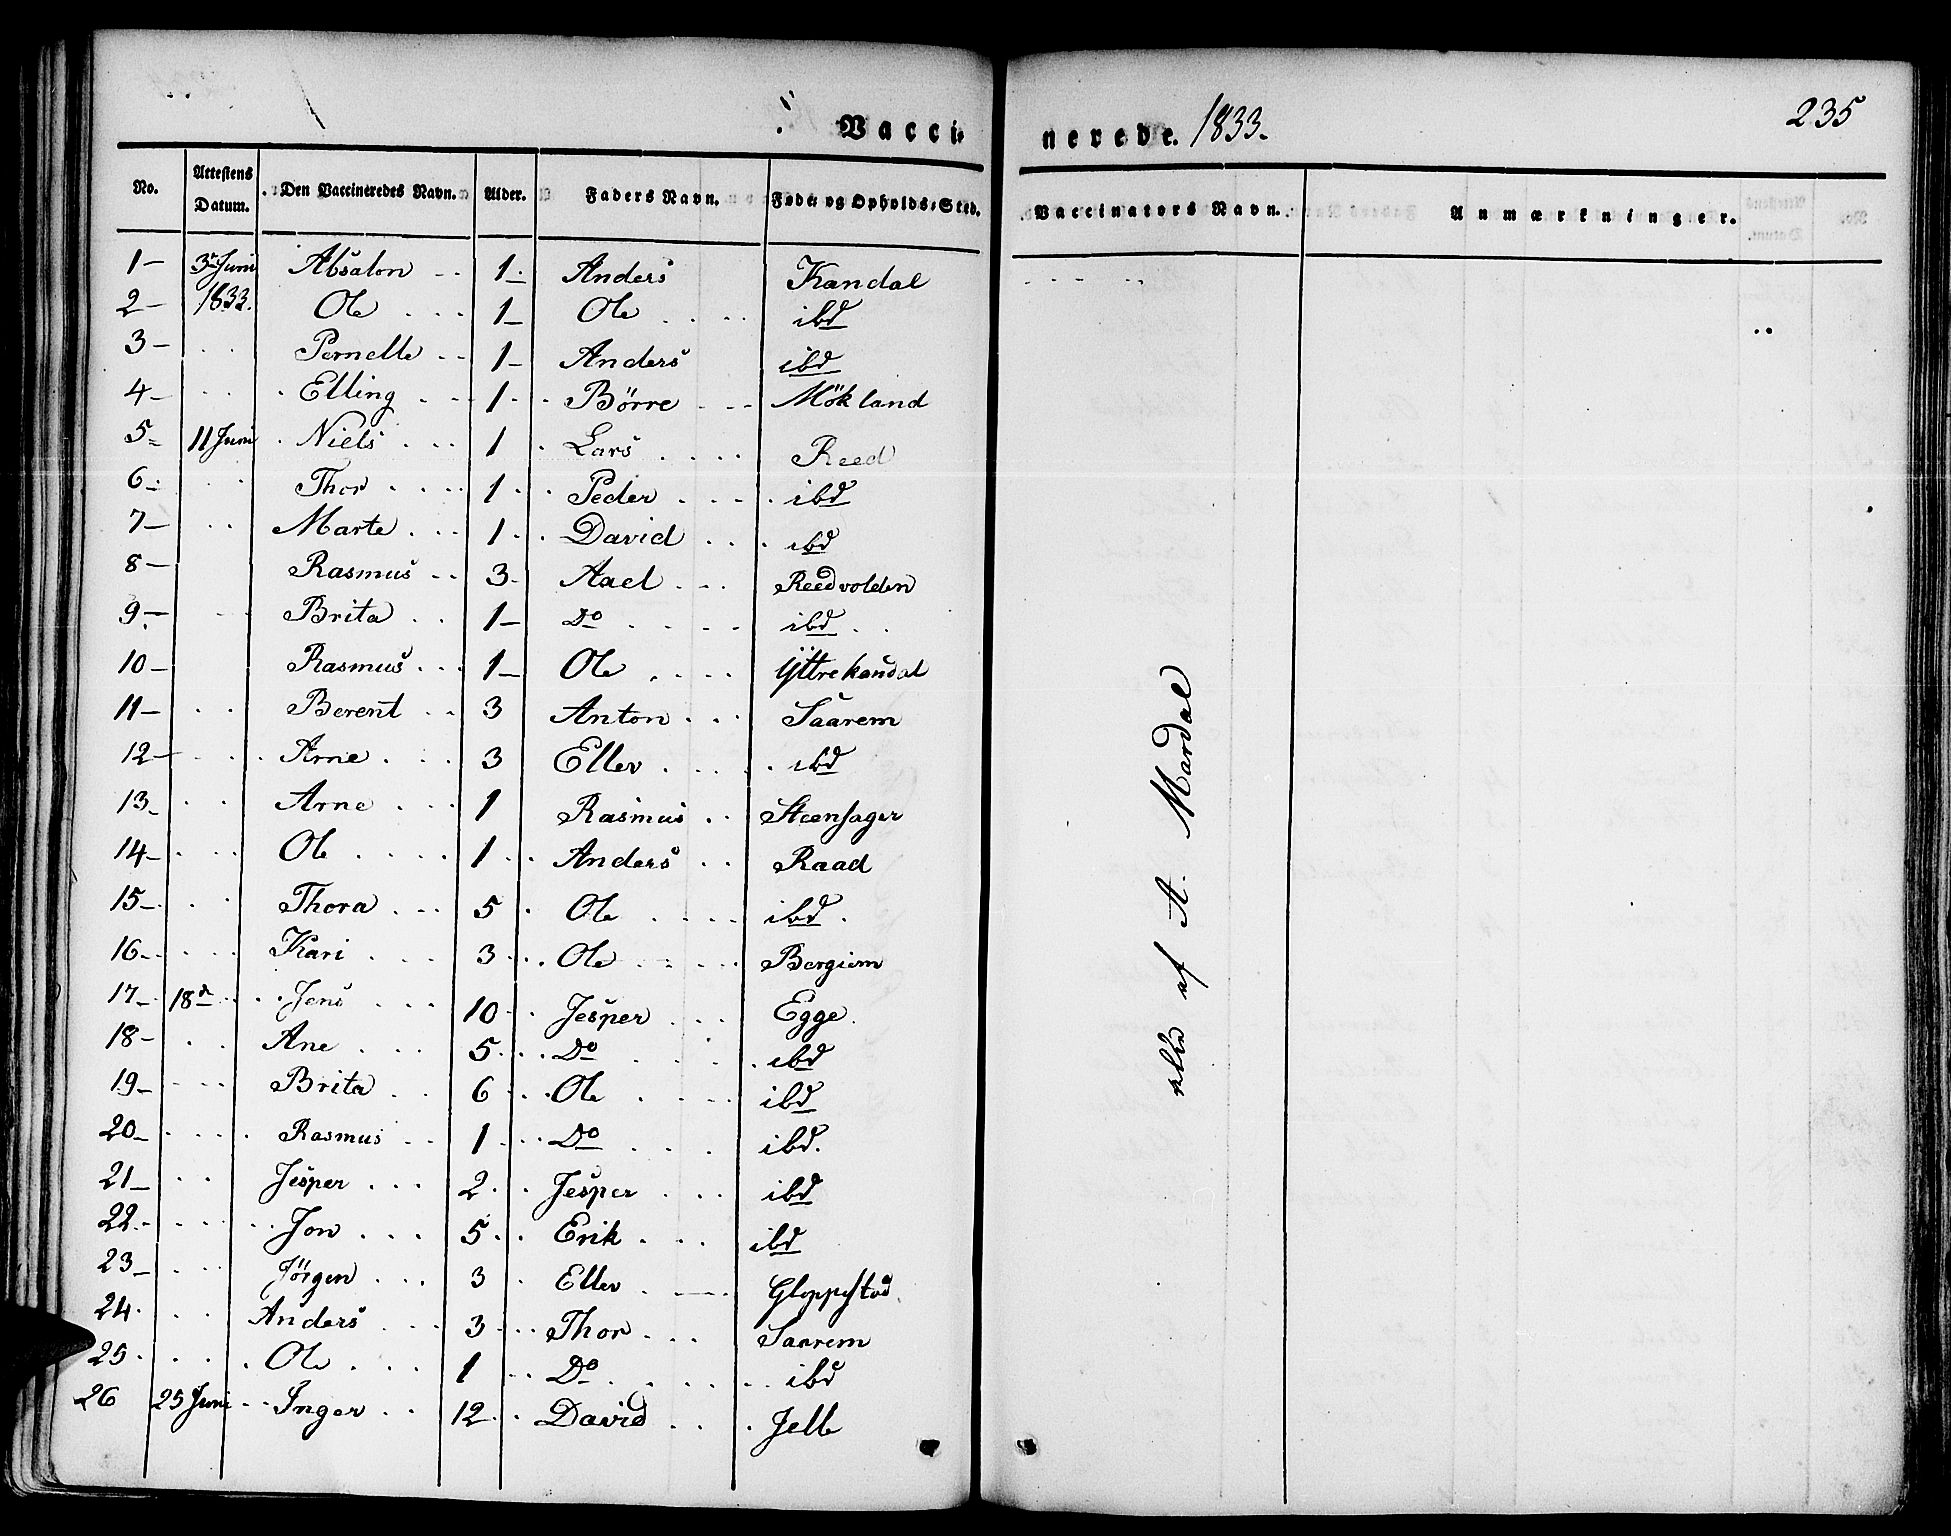 Vacci-
nerede. 1833.
235
No. Attestens Datum. Den Vaccineredes Navn. Alder. Faders Navn. Føde- og Opholds-Sted. Vaccinators Navn. Anmærkninger.
1 3 Juni Absalon 1 Anders Kandal
2 1833. Ole 1 Ole ibd
3 Pernelle 1 Anders ibd
4 Elling 1 Börre Mökland
5 11 Juni Niels 1 Lars Reed
6 Thor 1 Peder ibd
7 Marte 1 David ibd
8 Rasmus 3 Aael Reedvolden
9 Brita 1 Do ibd
10 Rasmus 1 Ole Yttrekandal
11 Berent 3 Anton Saarem
12 Arne 3 Ellev ibd
13 Arne 1 Rasmus Steensager
14 Ole 1 Anders Raad
15 Thora 5 Ole ibd.
16 Kari 3 Ole Bergiem
17 18d Jens 10 Jesper Egge.
18 Ane 5 Do ibd
19 Brita 6 Ole ibd
20 Rasmus 1 Do ibd.
21 Jesper 2 Jesper ibd
22 Jon 5 Erik ibd
23 Jörgen 3 Ellev Gloppestad
24 Anders 3 Thor Saarem
25 Ole 1 Do ibd
26 25 Juni Inger 12 David Jelle
alle af A. Mardal